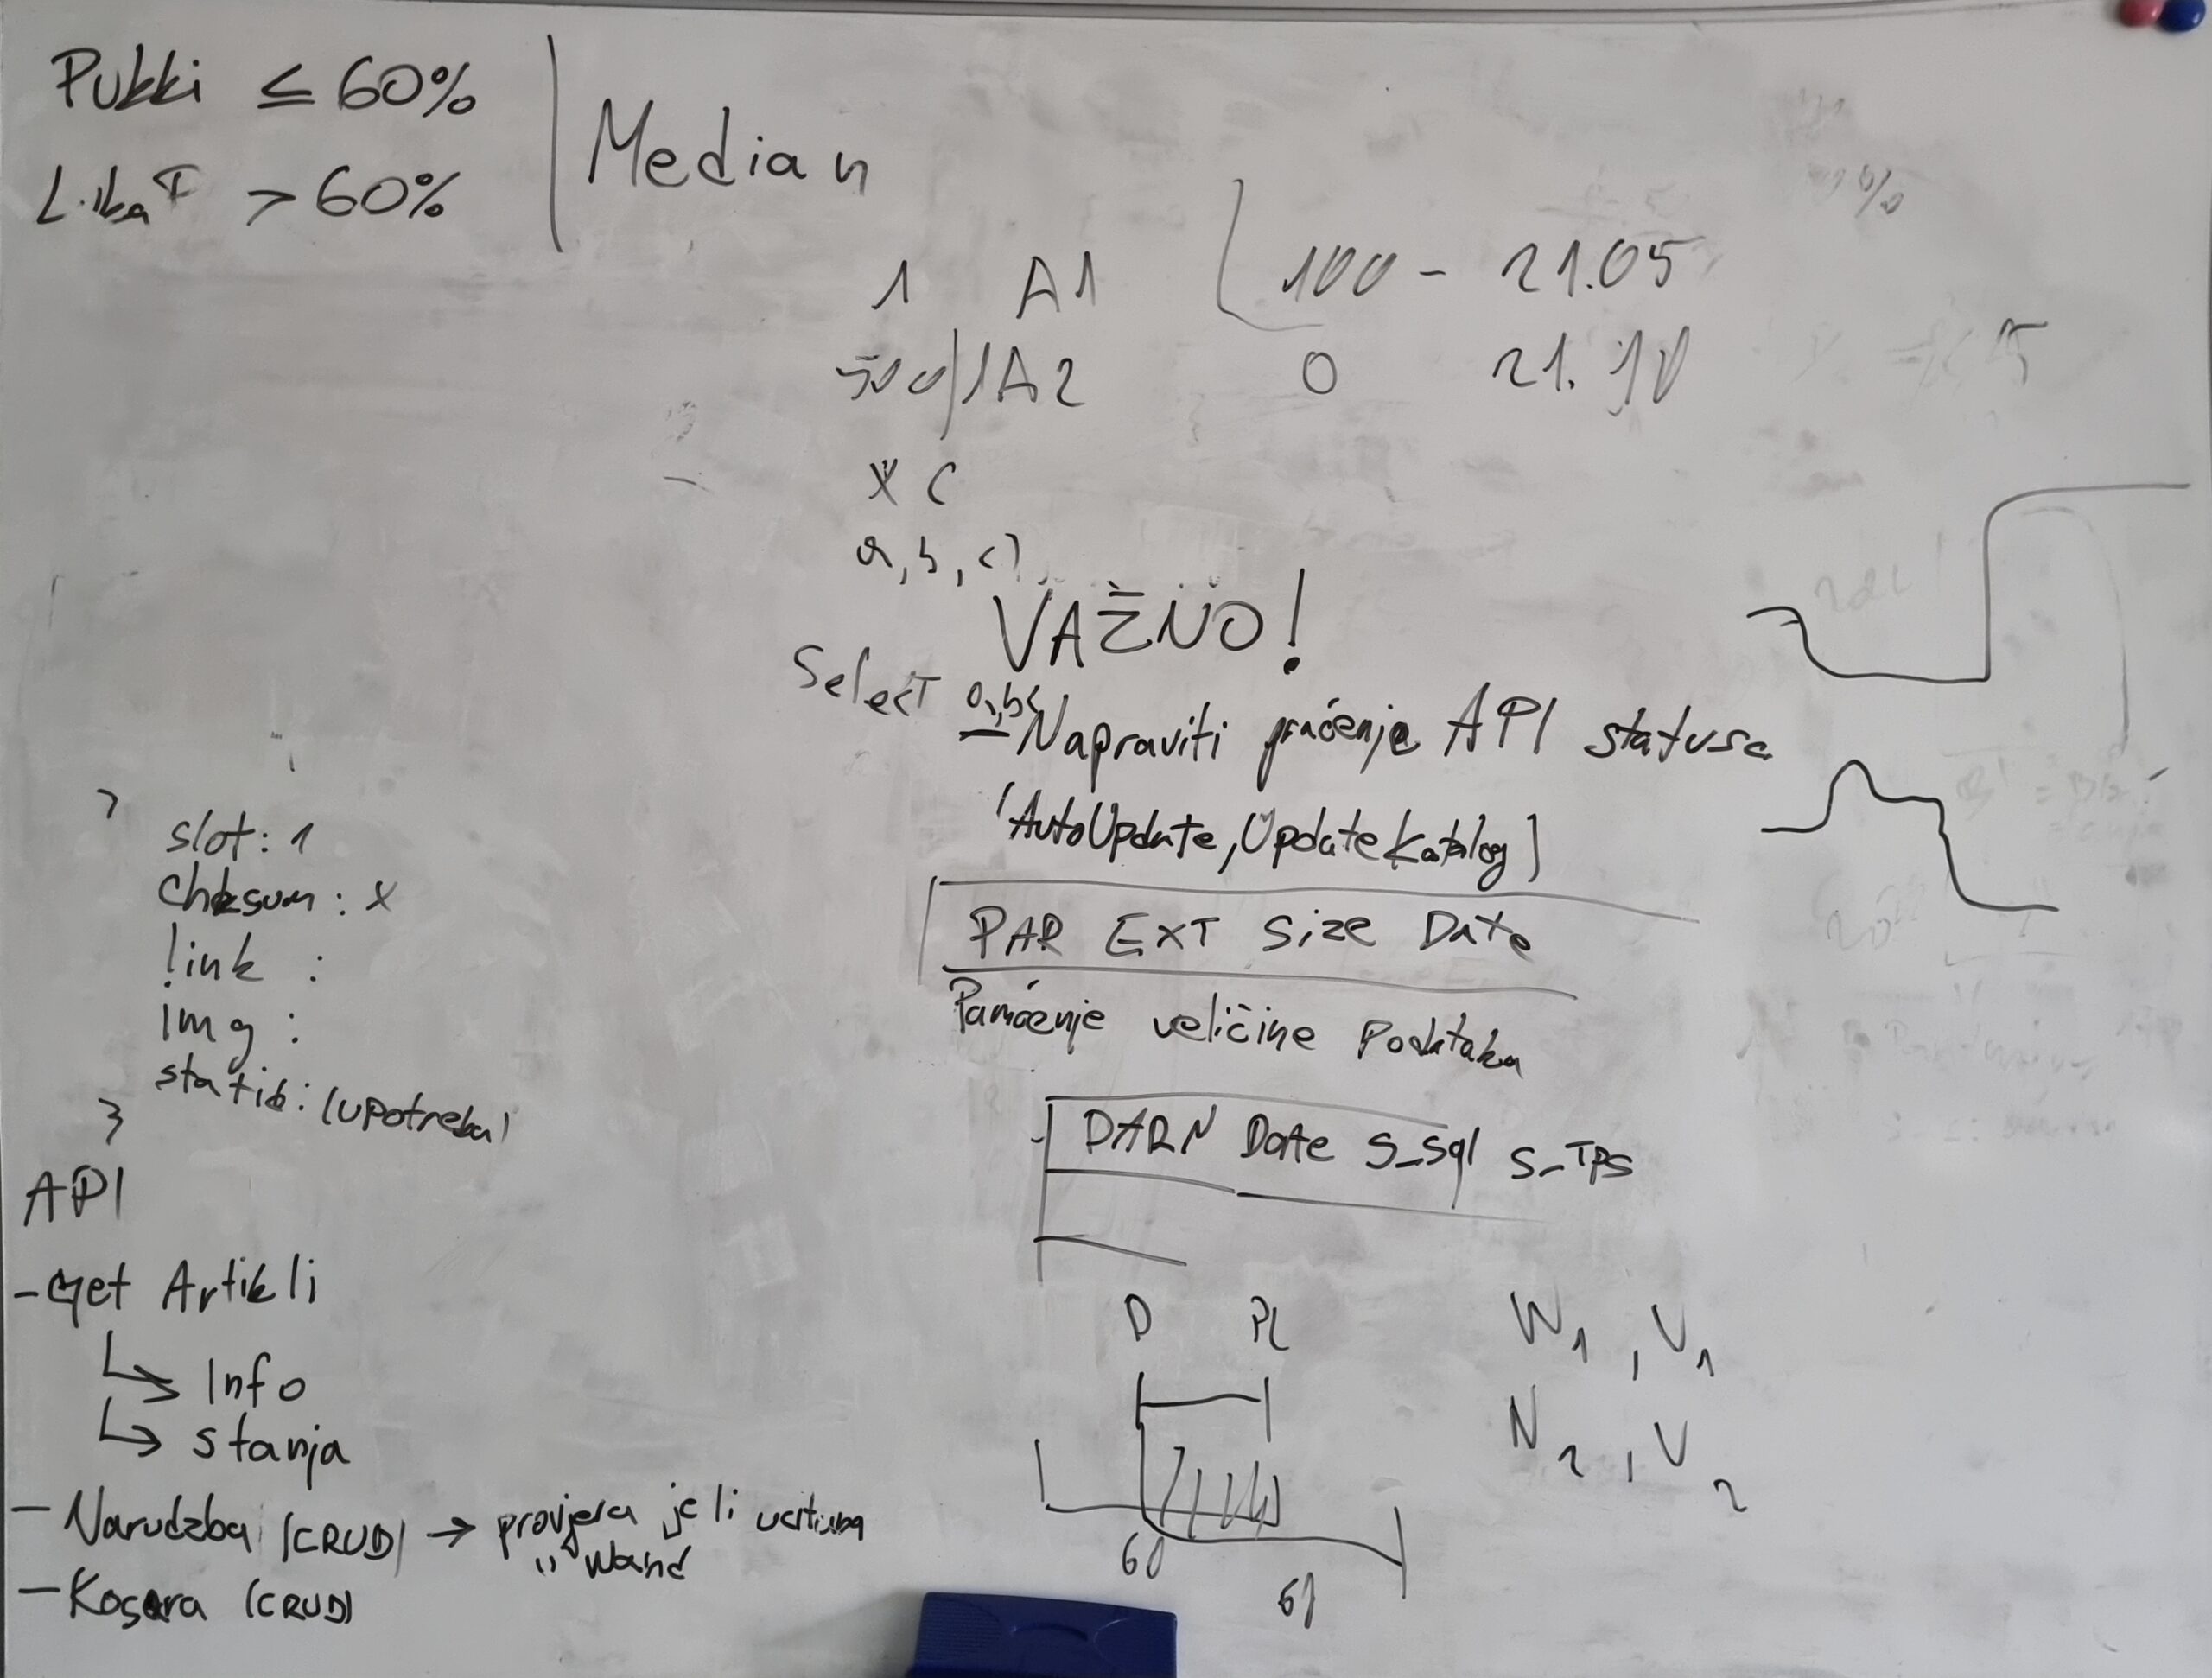 Pukki ≤ 60%
> 60%
Median
1 A1 100 - 21.05
500/1 A2 0 21.10
X C
a, b, c)
VAŽNO!
Select a,b,c
Napraviti praćenje API statusa
(AutoUpdate, UpdateKatalog)
PAR EXT Size Date
Pamćenje veličine Podataka
DARN Date S_Sql S_TPS
slot: 1
chksum: x
link :
img :
static: (upotreba)
}
API
- Get Artikli
↳ Info
↳ stanja
- Narudzba (CRUD) → provjera je li
- Kosara (CRUD)
D PL
60
61
W1, V1
N2, V2